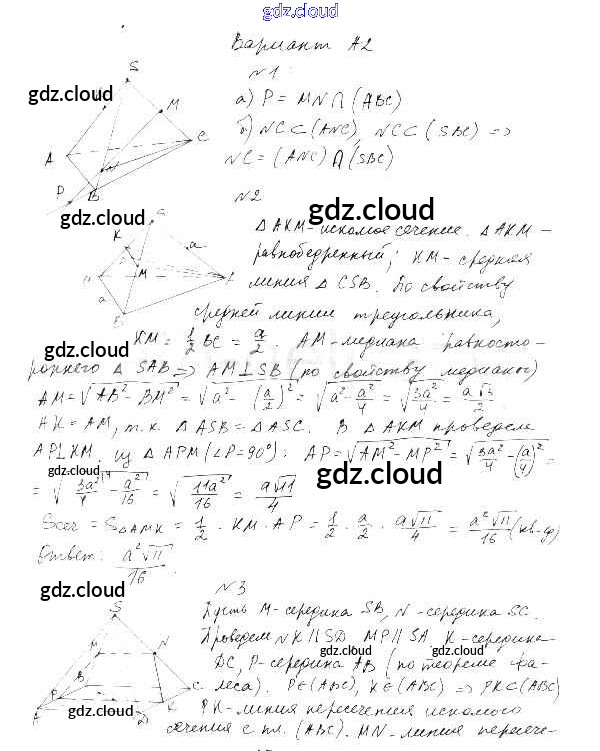 gdz.cloud
Вариант А2
N1:
а) P = MN ∩ (ABC)
б) NC ⊂ (ANC), NC ⊂ (SBC) =>
NC = (ANC) ∩ (SBC)
gdz.cloud
S
M
A
C
N
P
B
gdz.cloud
N2
gdz.cloud
ΔAKM - искомое сечение. ΔAKM -
равнобедренный; KM - средняя
линия ΔCSB. По свойству
средней линии треугольника,
KM = 1/2 BC = a/2. AM - медиана равносто-
роннего ΔSAB => AM ⊥ SB (по свойству медианы)
K
a
M
a
B
gdz.cloud
AM = √(AB² - BM²) = √(a² - (a/2)²) = √(a² - a²/4) = √(3a²/4) = a√3/2
AK = AM, т.к. ΔASB = ΔASC. В ΔAKM проведем
AP ⊥ KM. Из ΔAPM (∠P = 90°): AP = √(AM² - MP²) = √(3a²/4 - (a/4)²) =
= √(3a²/4 - a²/16) = √(11a²/16) = a√11/4
gdz.cloud
gdz.cloud
Sсеч = SΔAMK = 1/2 · KM · AP = 1/2 · a/2 · a√11/4 = a²√11/16 (кв. ф)
Ответ: a²√11/16.
gdz.cloud
N3
Пусть M - середина SB, N - середина SC.
Проведем NK || SD MP || SA K - середина
DC, P - середина AB (по теореме Фа-
леса). P ∈ (ABC), K ∈ (ABC) => PK ⊂ (ABC)
PK - линия пересечения искомого
сечения с пл. (ABC). MN - линия пересече-
S
M
N
C
K
gdz.cloud
gdz.cloud
gdz.cloud